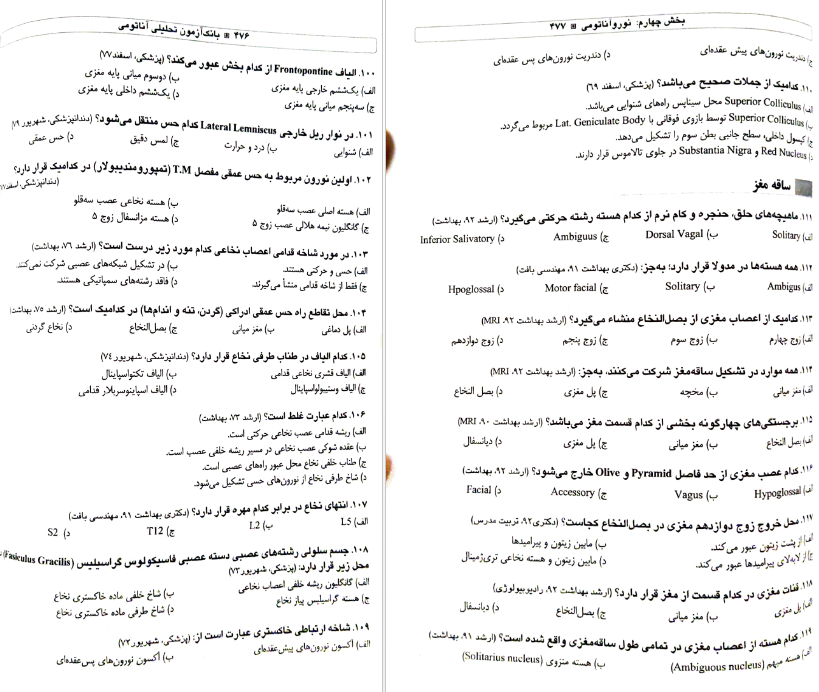 ۴۷۶ ▣ بانک‌آزمون تحلیلی آناتومی
۱۰۰. الیاف Frontopontine از کدام بخش عبور می‌کند؟ (پزشکی، اسفند۷۷)
الف) یک‌ششم خارجی پایه مغزی
ب) دوسوم میانی پایه مغزی
ج) سه‌پنجم میانی پایه مغزی
د) یک‌ششم داخلی پایه مغزی
۱۰۱. در نوار ریل خارجی Lateral Lemniscus کدام حس منتقل می‌شود؟ (دندانپزشکی، شهریور ۷۹)
الف) شنوایی
ب) درد و حرارت
ج) لمس دقیق
د) حس عمقی
۱۰۲. اولین نورون مربوط به حس عمقی مفصل T.M (تمپورومندیبولار) در کدامیک قرار دارد؟
(دندانپزشکی، اسفند
الف) هسته اصلی عصب سه‌قلو
ب) هسته نخاعی عصب سه‌قلو
ج) گانگلیون نیمه هلالی عصب زوج ۵
د) هسته مزانسفال زوج ۵
۱۰۳. در مورد شاخه قدامی اعصاب نخاعی کدام مورد زیر درست است؟ (ارشد ۷۶، بهداشت)
الف) حسی و حرکتی هستند.
ب) در تشکیل شبکه‌های عصبی شرکت نمی‌کنند.
ج) فقط از شاخه قدامی منشأ می‌گیرند.
د) فاقد رشته‌های سمپاتیکی هستند.
۱۰۴. محل تقاطع راه حس عمقی ادراکی (گردن، تنه و اندام‌ها) در کدامیک است؟ (ارشد ۷۵، بهداشت)
الف) پل دماغی
ب) مغز میانی
ج) بصل‌النخاع
د) نخاع گردنی
۱۰۵. کدام الیاف در طناب طرفی نخاع قرار دارد؟ (دندانپزشکی، شهریور ۷۴)
الف) الیاف قشری نخاعی قدامی
ب) الیاف تکتواسپاینال
ج) الیاف وستیبولواسپاینال
د) الیاف اسپاینوسربلار قدامی
۱۰۶. کدام عبارت غلط است؟ (ارشد ۷۳، بهداشت)
الف) ریشه قدامی عصب نخاعی حرکتی است.
ب) عقده شوکی عصب نخاعی در مسیر ریشه خلفی عصب است.
ج) طناب خلفی نخاع محل عبور راه‌های عصبی است.
د) شاخ طرفی نخاع از نورون‌های حسی تشکیل می‌شود.
۱۰۷. انتهای نخاع در برابر کدام مهره قرار دارد؟ (دکتری بهداشت ۹۱، مهندسی بافت)
الف) L5
ب) L2
ج) T12
د) S2
۱۰۸. جسم سلولی رشته‌های عصبی دسته عصبی فاسیکولوس گراسیلیس (Fasiculus Gracilis)
محل زیر قرار دارد: (پزشکی، شهریور ۷۳)
الف) گانگلیون ریشه خلفی اعصاب نخاعی
ب) شاخ خلفی ماده خاکستری نخاع
ج) هسته گراسیلیس پیاز نخاع
د) شاخ طرفی ماده خاکستری نخاع
۱۰۹. شاخه ارتباطی خاکستری عبارت است از: (پزشکی، شهریور ۷۲)
الف) آکسون نورون‌های پیش‌عقده‌ای
ب) آکسون نورون‌های پس‌عقده‌ای
بخش چهارم: نوروآناتومی ▣ ۴۷۷
ج) دندریت نورون‌های پیش عقده‌ای
د) دندریت نورون‌های پس عقده‌ای
۱۱۰. کدامیک از جملات صحیح می‌باشد؟ (پزشکی، اسفند ۶۹)
الف) Superior Colliculus محل سیناپس راه‌های شنوایی می‌باشد.
ب) Superior Colliculus توسط بازوی فوقانی با Lat. Geniculate Body مربوط می‌گردد.
ج) کپسول داخلی، سطح جانبی بطن سوم را تشکیل می‌دهد.
د) Red Nucleus و Substantia Nigra در جلوی تالاموس قرار دارند.
ساقه مغز
۱۱۱. ماهیچه‌های حلق، حنجره و کام نرم از کدام هسته رشته حرکتی می‌گیرد؟ (ارشد ۹۲، بهداشت)
الف) Solitary
ب) Dorsal Vagal
ج) Ambiguus
د) Inferior Salivatory
۱۱۲. همه هسته‌ها در مدولا قرار دارد؛ به‌جز: (دکتری بهداشت ۹۱، مهندسی بافت)
الف) Ambigus
ب) Solitary
ج) Motor facial
د) Hpoglossal
۱۱۳. کدامیک از اعصاب مغزی از بصل‌النخاع منشاء می‌گیرد؟ (ارشد بهداشت ۹۲، MRI)
الف) زوج چهارم
ب) زوج سوم
ج) زوج پنجم
د) زوج دوازدهم
۱۱۴. همه موارد در تشکیل ساقه‌مغز شرکت می‌کنند، به‌جز: (ارشد بهداشت ۹۲، MRI)
الف) مغز میانی
ب) مخچه
ج) پل مغزی
د) بصل النخاع
۱۱۵. برجستگی‌های چهارگونه بخشی از کدام قسمت مغز می‌باشد؟ (ارشد بهداشت ۹۰، MRI)
الف) بصل النخاع
ب) مغز میانی
ج) پل مغزی
د) دیانسفال
۱۱۶. کدام عصب مغزی از حد فاصل Pyramid و Olive خارج می‌شود؟ (ارشد ۹۲، بهداشت)
الف) Hypoglossal
ب) Vagus
ج) Accessory
د) Facial
۱۱۷. محل خروج زوج دوازدهم مغزی در بصل‌النخاع کجاست؟ (دکتری۹۲، تربیت مدرس)
الف) از پشت زیتون عبور می‌کند.
ب) مابین زیتون و پیرامیدها
ج) از لابه‌لای پیرامیدها عبور می‌کند.
د) مابین زیتون و هسته نخاعی تری‌ژمینال
۱۱۸. قنات مغزی در کدام قسمت از مغز قرار دارد؟ (ارشد بهداشت ۹۲، رادیوبیولوژی)
الف) پل مغزی
ب) مغز میانی
ج) بصل‌النخاع
د) دیانسفال
۱۱۹. کدام هسته از اعصاب مغزی در تمامی طول ساقه‌مغزی واقع شده است؟ (ارشد ۹۱، بهداشت)
الف) هسته مبهم (Ambiguous nucleus)
ب) هسته منزوی (Solitarius nucleus)